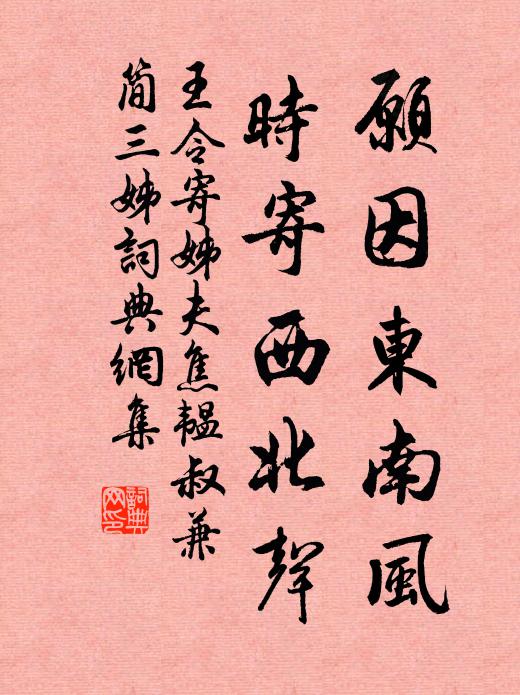 願因東南風
時寄西北聲
王令寄姊夫焦韞叔兼
简三姊詞典網集
詞典網印